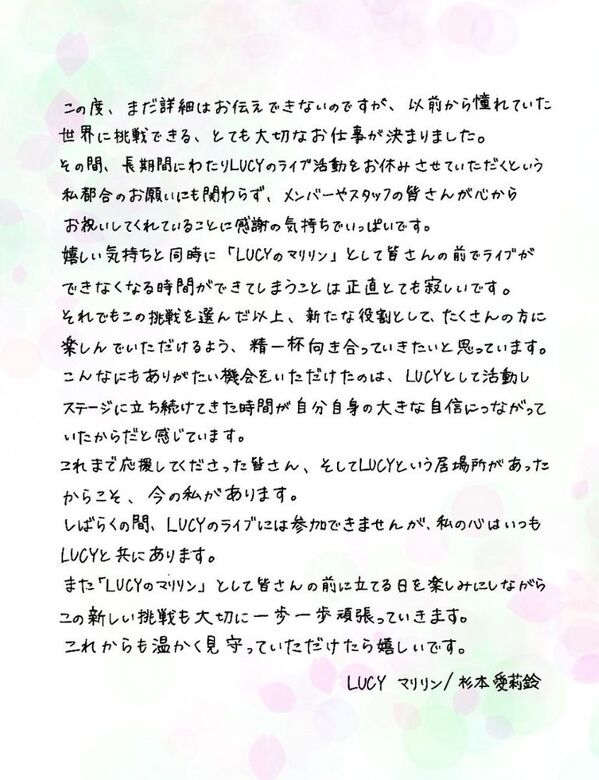 この度、まだ詳細はお伝えできないのですが、以前から憧れていた
世界に挑戦できる、とても大切なお仕事が決まりました。
その間、長期間にわたりLUCYのライブ活動をお休みさせていただくという
私都合のお願いにも関わらず、メンバーやスタッフの皆さんが心から
お祝いしてくれていることに感謝の気持ちでいっぱいです。
嬉しい気持ちと同時に「LUCYのマリリン」として皆さんの前でライブが
できなくなる時間ができてしまうことは正直とても寂しいです。
それでもこの挑戦を選んだ以上、新たな役割として、たくさんの方に
楽しんでいただけるよう、精一杯向き合っていきたいと思っています。
こんなにもありがたい機会をいただけたのは、LUCYとして活動し
ステージに立ち続けてきた時間が自分自身の大きな自信につながって
いたからだと感じています。
これまで応援してくださった皆さん、そしてLUCYという居場所があった
からこそ、今の私があります。
しばらくの間、LUCYのライブには参加できませんが、私の心はいつも
LUCYと共にあります。
また「LUCYのマリリン」として皆さんの前に立てる日を楽しみにしながら
この新しい挑戦も大切に一歩一歩頑張っていきます。
これからも温かく見守っていただけたら嬉しいです。
LUCY マリリン/杉本愛莉鈴